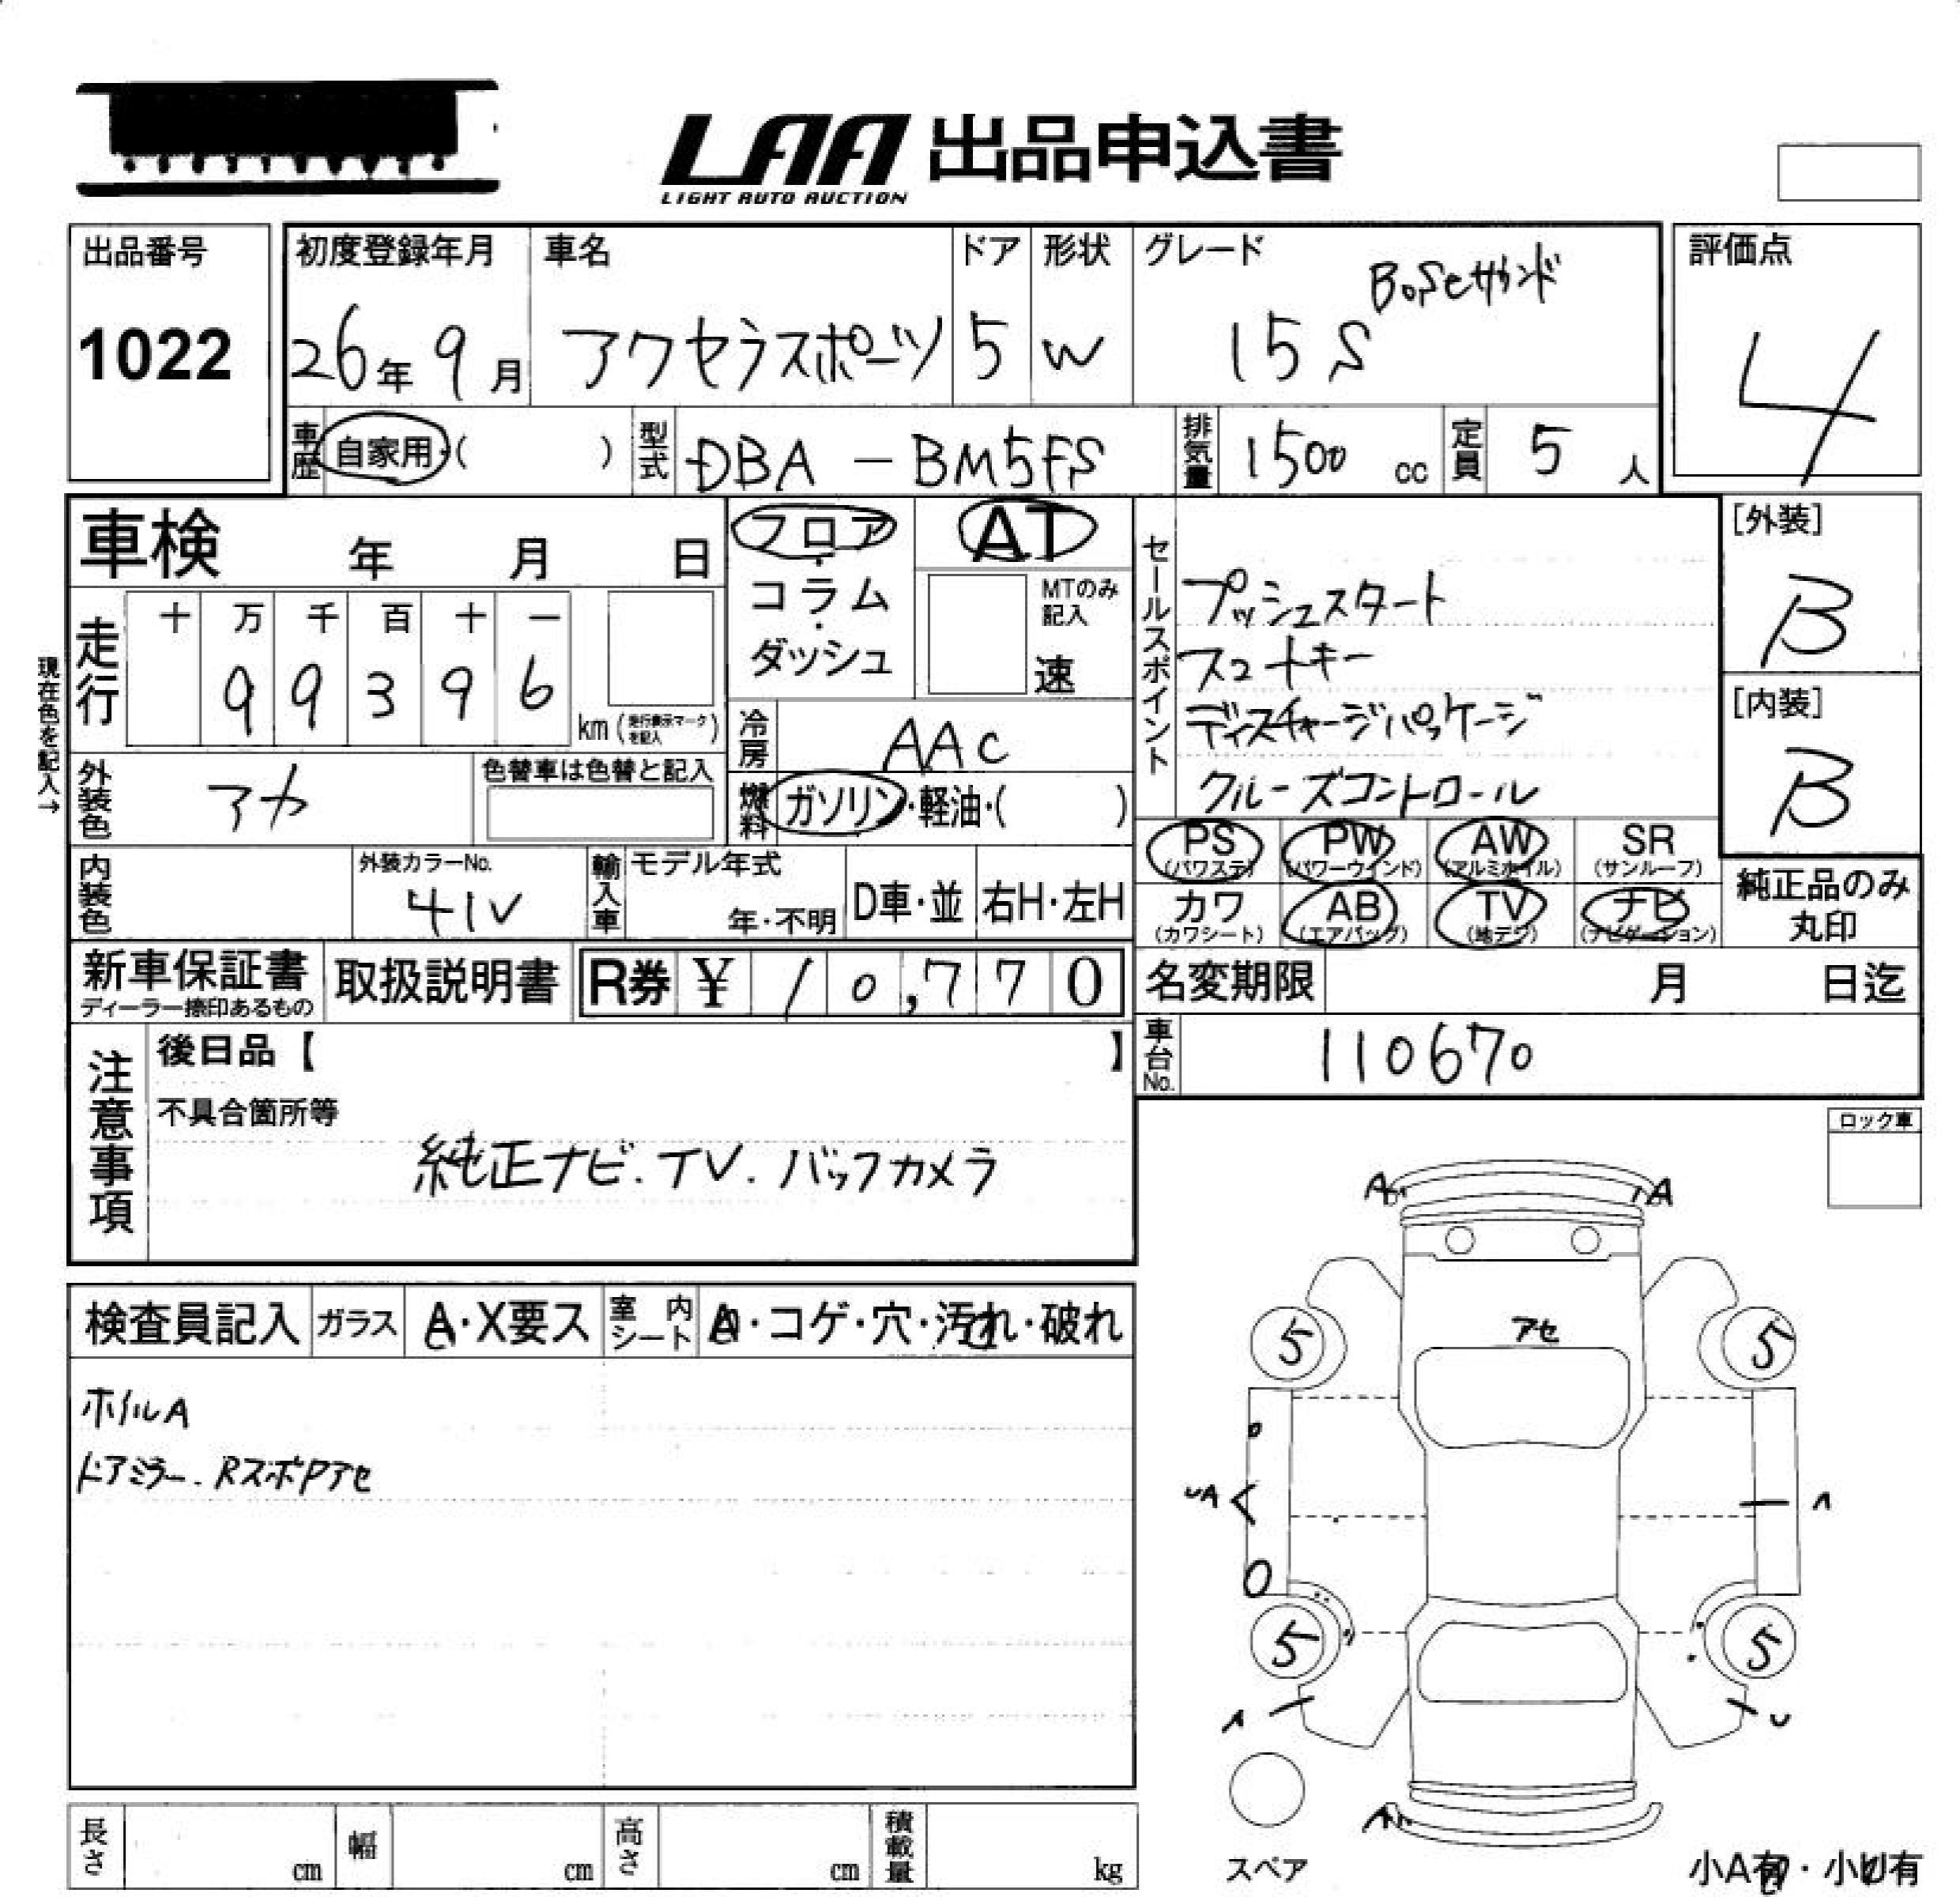 LAA 出品申込書
LIGHT AUTO AUCTION
出品番号
1022
初度登録年月
26年 9月
車名
アクセラスポーツ
ドア
5
形状
W
グレード
Boseサウンド
15S
評価点
4
車歴 自家用・( )
型式 DBA - BM5FS
排気量 1500 cc
定員 5 人
車検 年 月 日
フロア・コラム・ダッシュ
AT
MTのみ記入
速
セールスポイント
プッシュスタート
スマートキー
ディスチャージパッケージ
クルーズコントロール
[外装]
B
[内装]
B
現在色を記入→
走行
十 万 千 百 十 一
9 9 3 9 6
km (走行表示マークを記入)
冷房 AAC
外装色 アカ
色替車は色替と記入
燃料 ガソリン・軽油・( )
PS (パワステ)
PW (パワーウインド)
AW (アルミホイル)
SR (サンルーフ)
カワ (カワシート)
AB (エアバッグ)
TV (地デジ)
ナビ (ナビゲーション)
純正品のみ
丸印
内装色
外装カラーNo.
41V
輸入車
モデル年式
年・不明
D車・並
右H・左H
新車保証書
ディーラー捺印あるもの
取扱説明書
R券 ¥ 10,770
名変期限 月 日迄
車台No. 110670
注意事項
後日品【 】
不具合箇所等
純正ナビ.TV.バックカメラ
ロック車
検査員記入
ガラス
A・X要ス
室内シート
・コゲ・穴・汚れ・破れ
ホイルA
ドアミラー.RスポPアセ
A A
アセ
5 5
UA
5 5
U
スペア
小A有・小U有
長さ cm
幅 cm
高さ cm
積載量 kg